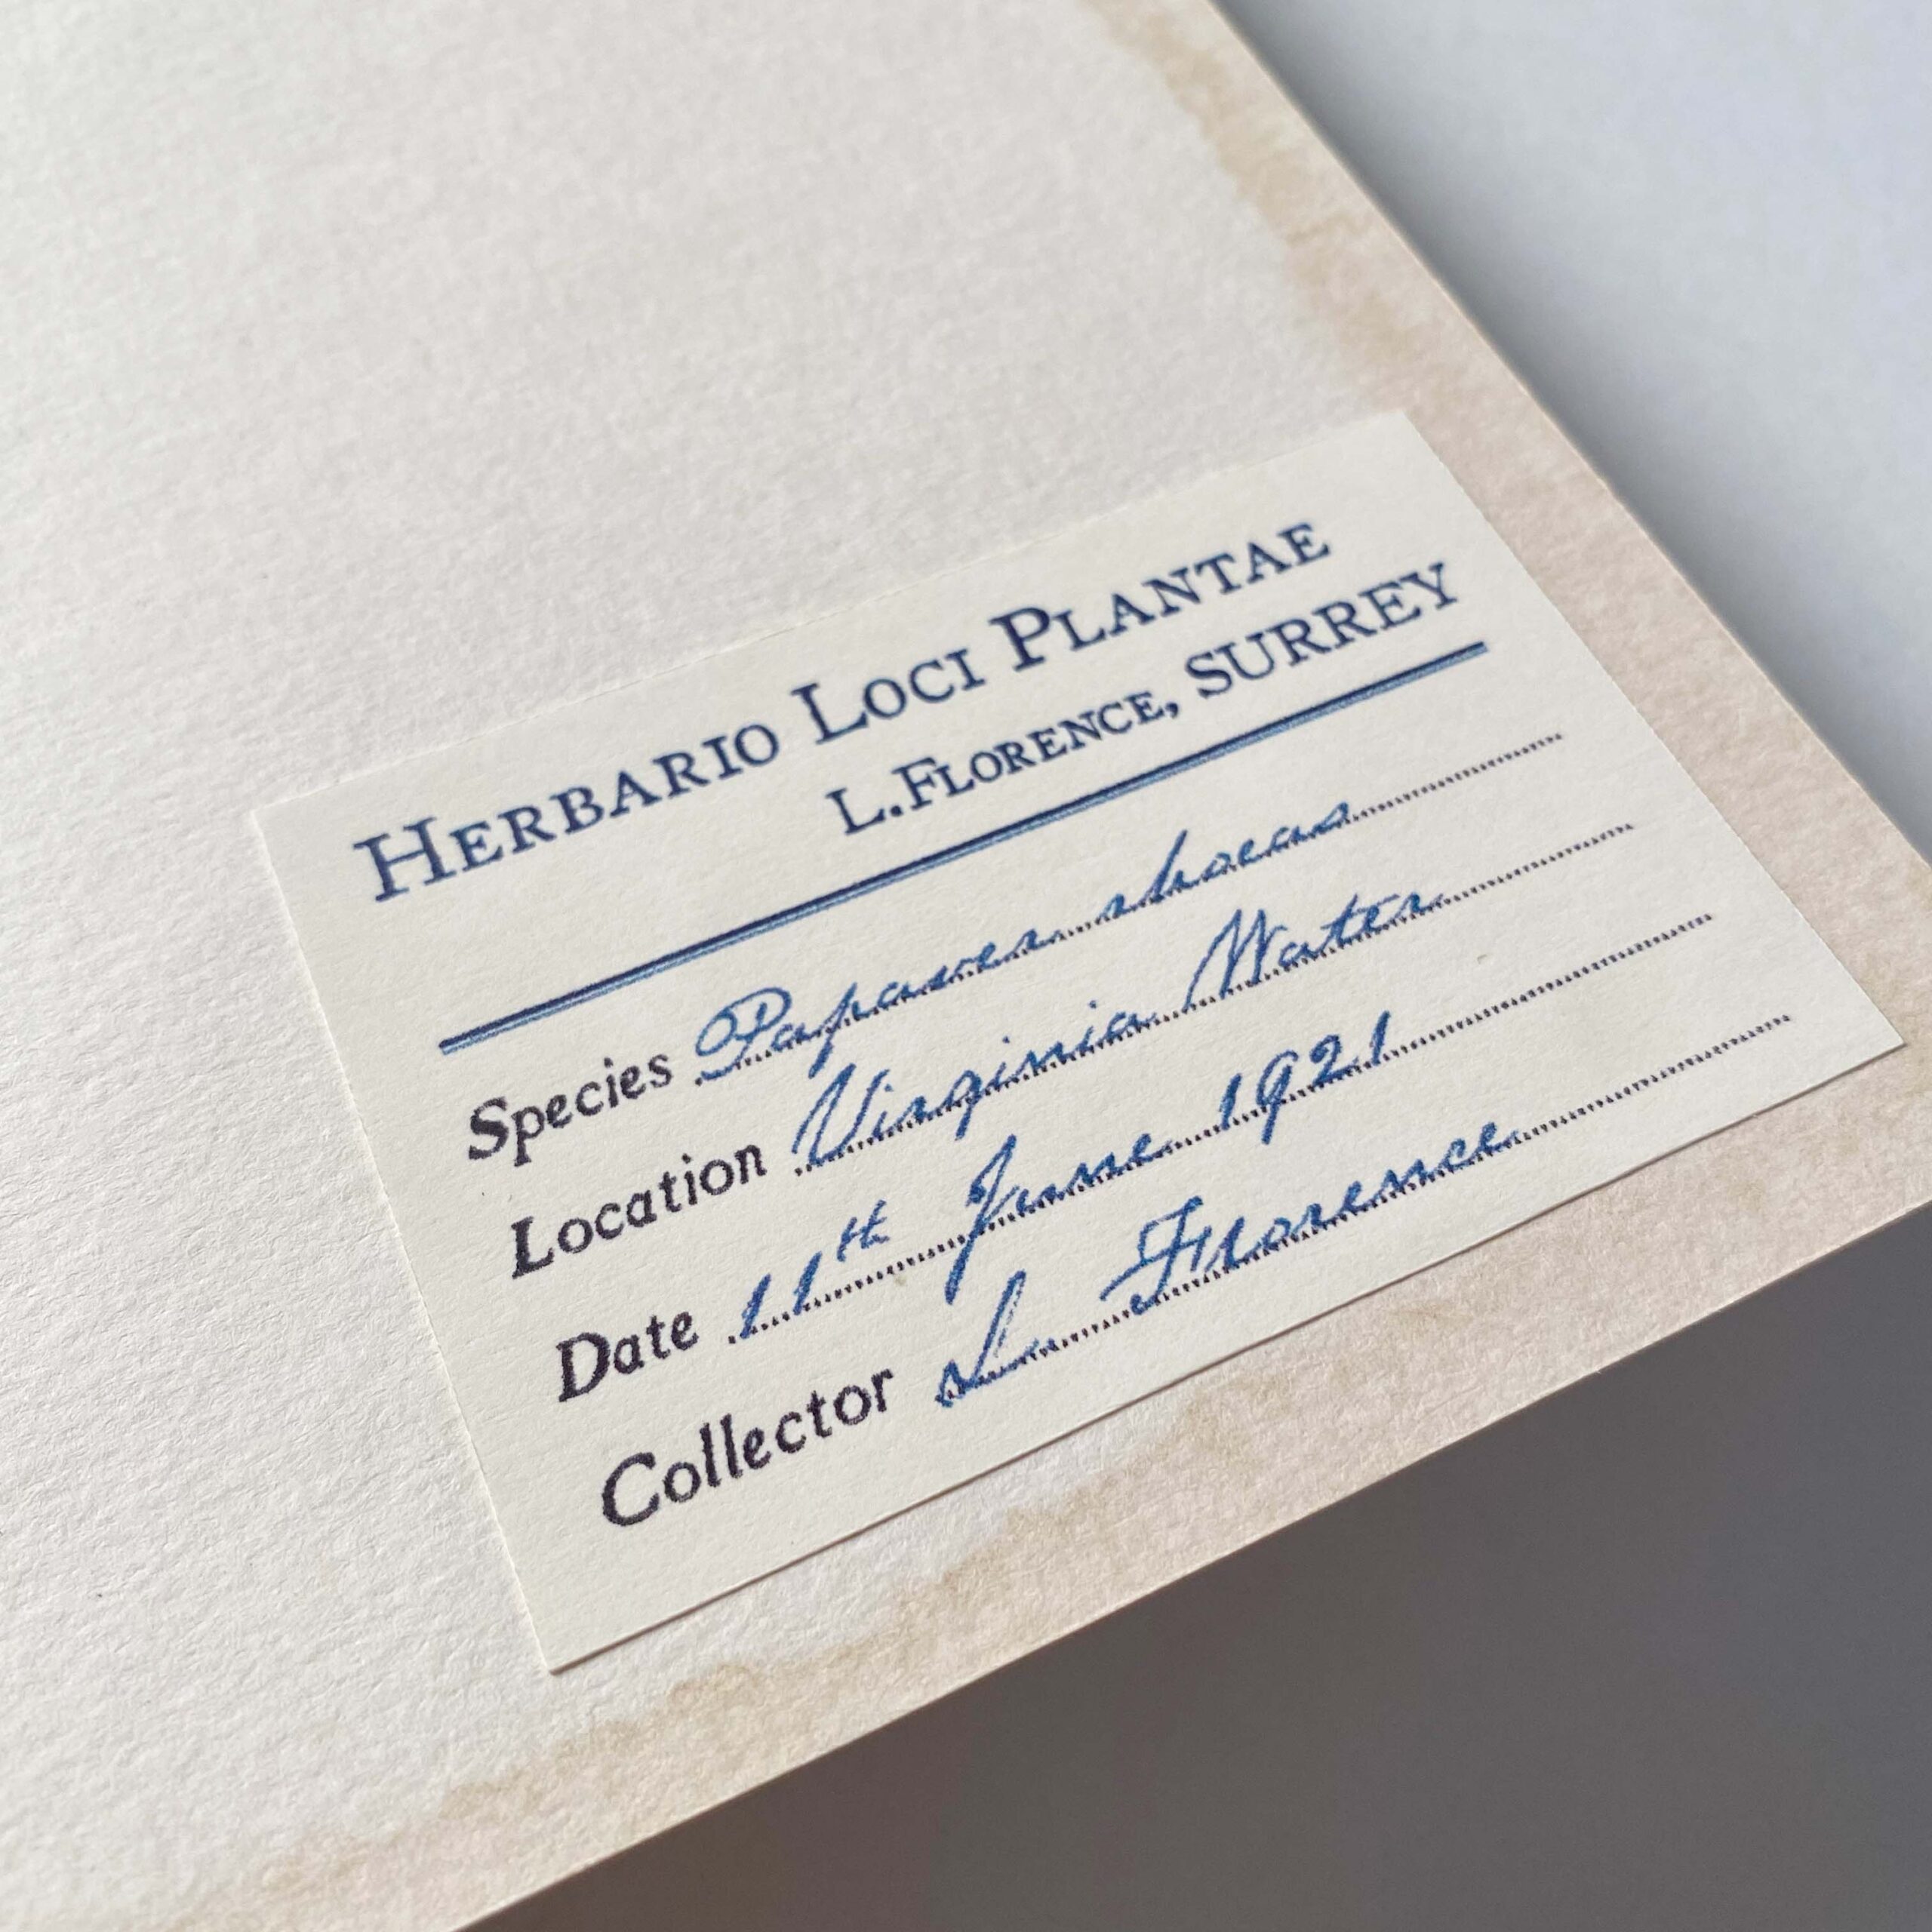 HERBARIO LOCI PLANTAE
L.FLORENCE, SURREY
Species Papaver rhoeas
Location Virginia Water
Date 11th June 1921
Collector L. Florence